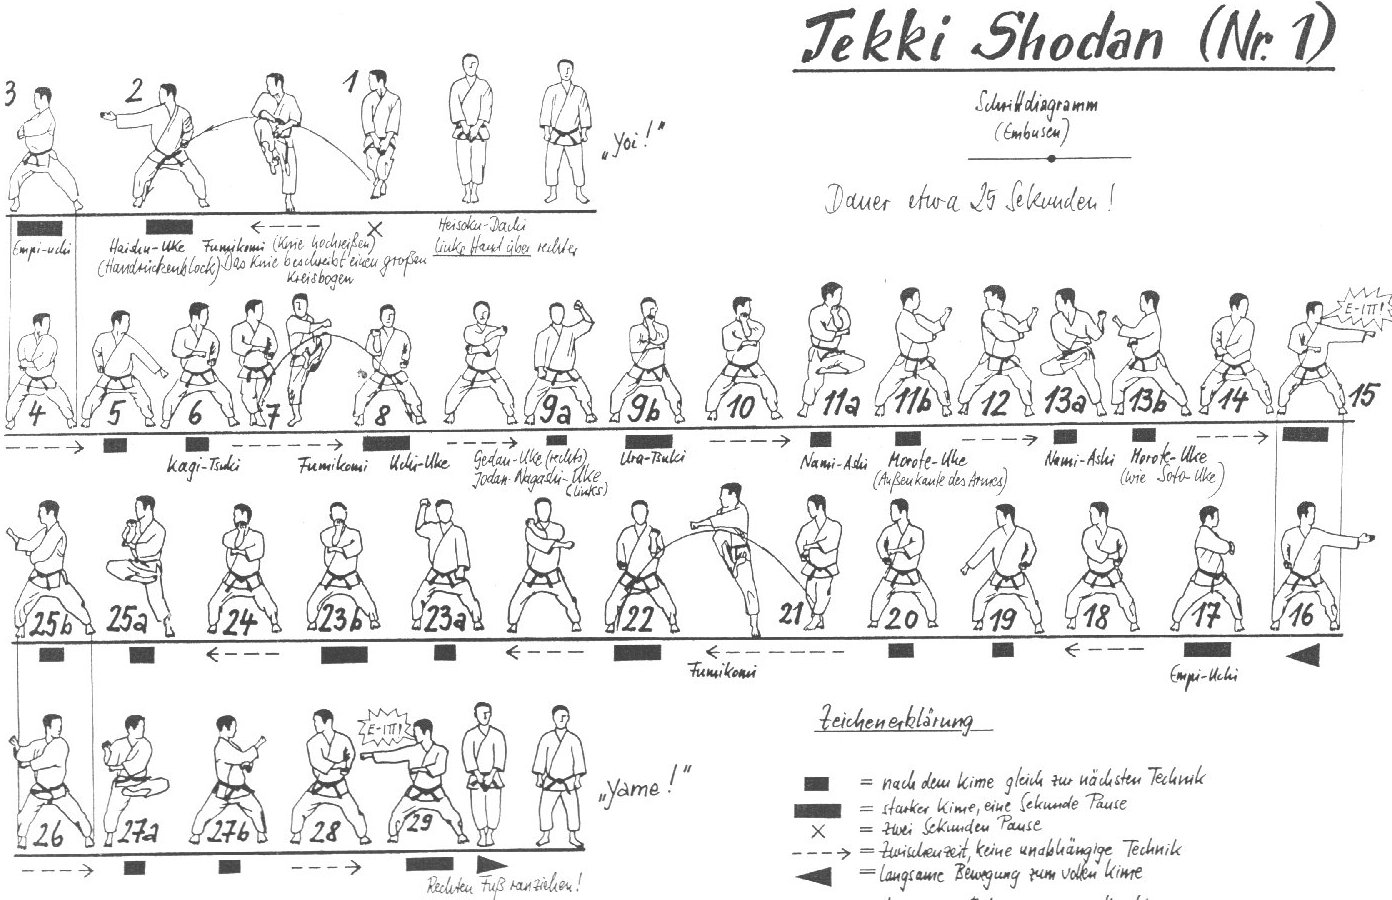 Tekki Shodan (Nr. 1)
Schrittdiagramm
(Embusen)
Dauer etwa 25 Sekunden!
3 2 1
„Yoi!"
Empi-uchi
Haishu-Uke
(Handrückenblock)
Fumikomi (Knie hochreißen)
Das Knie beschreibt einen großen
Kreisbogen
Heisoku-Dachi
linke Hand über rechter
E-ITI!
4 5 6 7 8 9a 9b 10 11a 11b 12 13a 13b 14 15
Kagi-Tsuki
Fumikomi
Uchi-Uke
Gedan-Uke (rechts)
Jodan-Nagashi-Uke
(links)
Ura-Tsuki
Nami-Ashi
Morote-Uke
(Außenkante des Armes)
Nami-Ashi
Morote-Uke
(wie Soto-Uke)
25b 25a 24 23b 23a 22 21 20 19 18 17 16
Fumikomi
Empi-Uchi
E-ITI!
26 27a 27b 28 29
„Yame!"
Rechten Fuß ranziehen!
Zeichenerklärung
= nach dem Kime gleich zur nächsten Technik
= starker Kime, eine Sekunde Pause
= zwei Sekunden Pause
= Zwischenzeit, keine unabhängige Technik
= langsame Bewegung zum vollen Kime